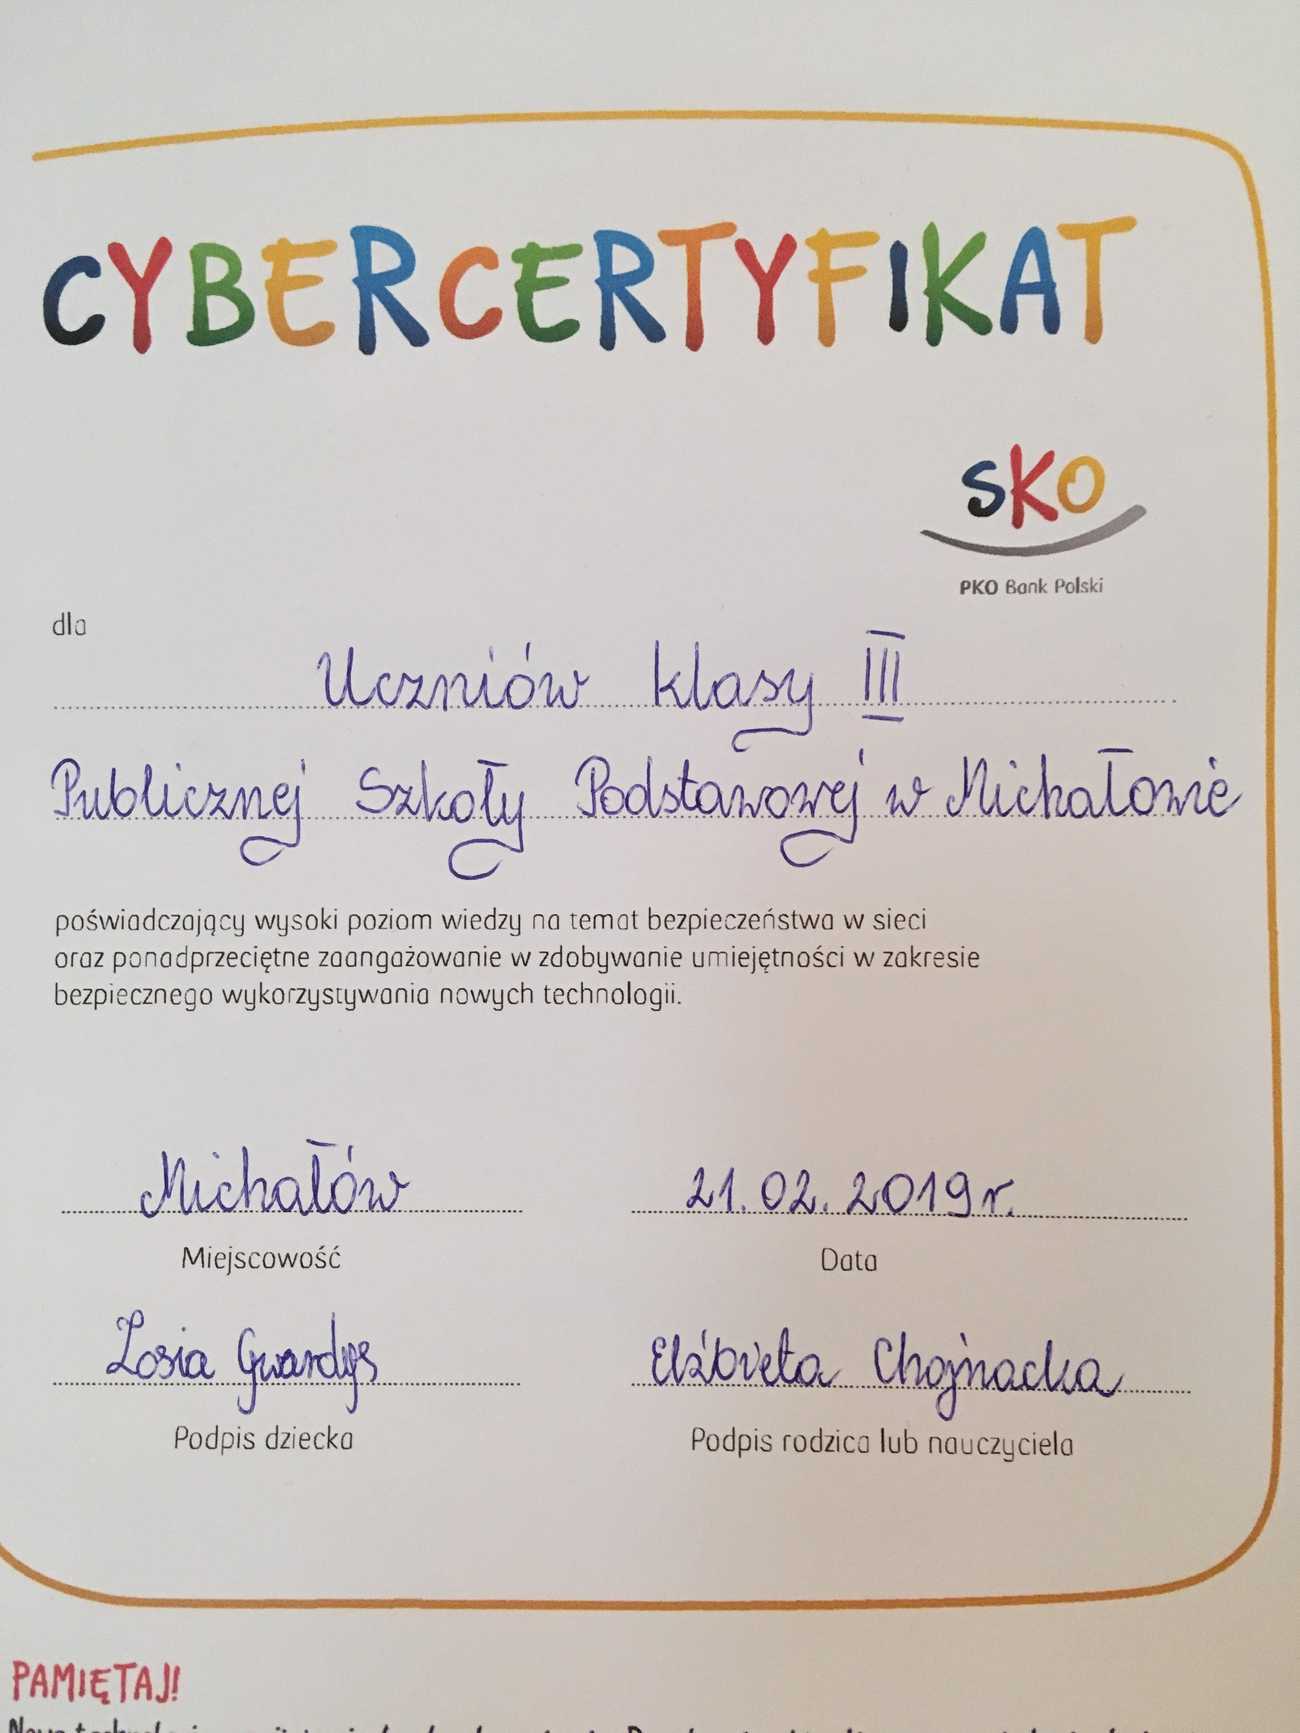 CYBERCERTYFIKAT
SKO
PKO Bank Polski
dla
Uczniów klasy III
Publicznej Szkoły Podstawowej w Michałowie
poświadczający wysoki poziom wiedzy na temat bezpieczeństwa w sieci
oraz ponadprzeciętne zaangażowanie w zdobywanie umiejętności w zakresie
bezpiecznego wykorzystywania nowych technologii.
Michałów 21.02.2019r.
Miejscowość Data
Zosia Gwardys Elżbieta Chojnacka
Podpis dziecka Podpis rodzica lub nauczyciela
PAMIĘTAJ!